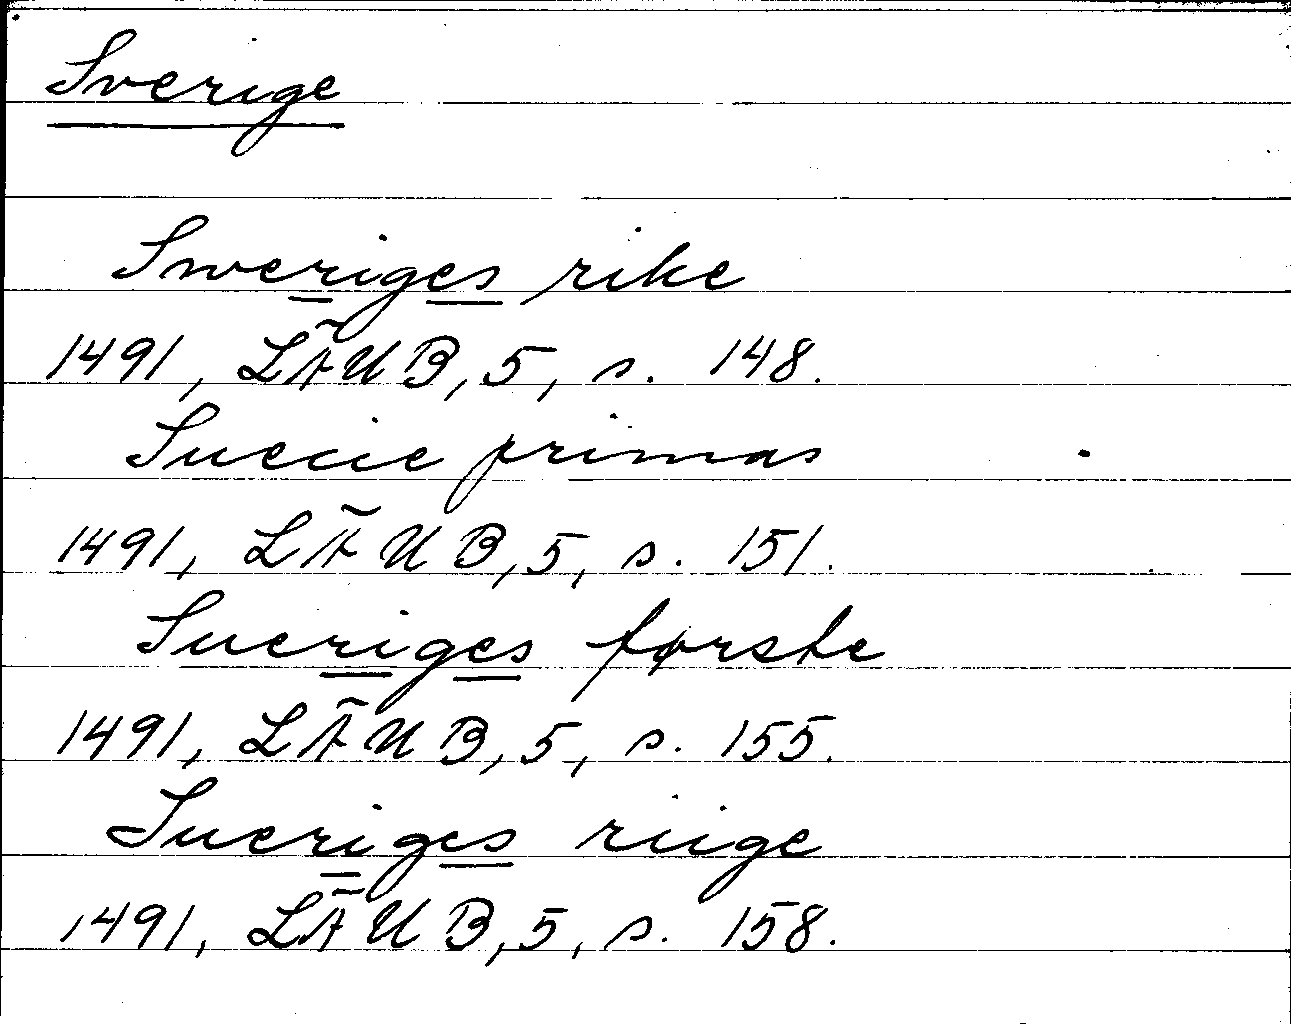 Sverige
Sweriges rike
1491, LÄUB, 5, s. 148.
Suecie primas
1491, LÄUB, 5, s. 151.
Sueriges første
1491, LÄUB, 5, s. 155.
Sueriges riige
1491, LÄUB, 5, s. 158.